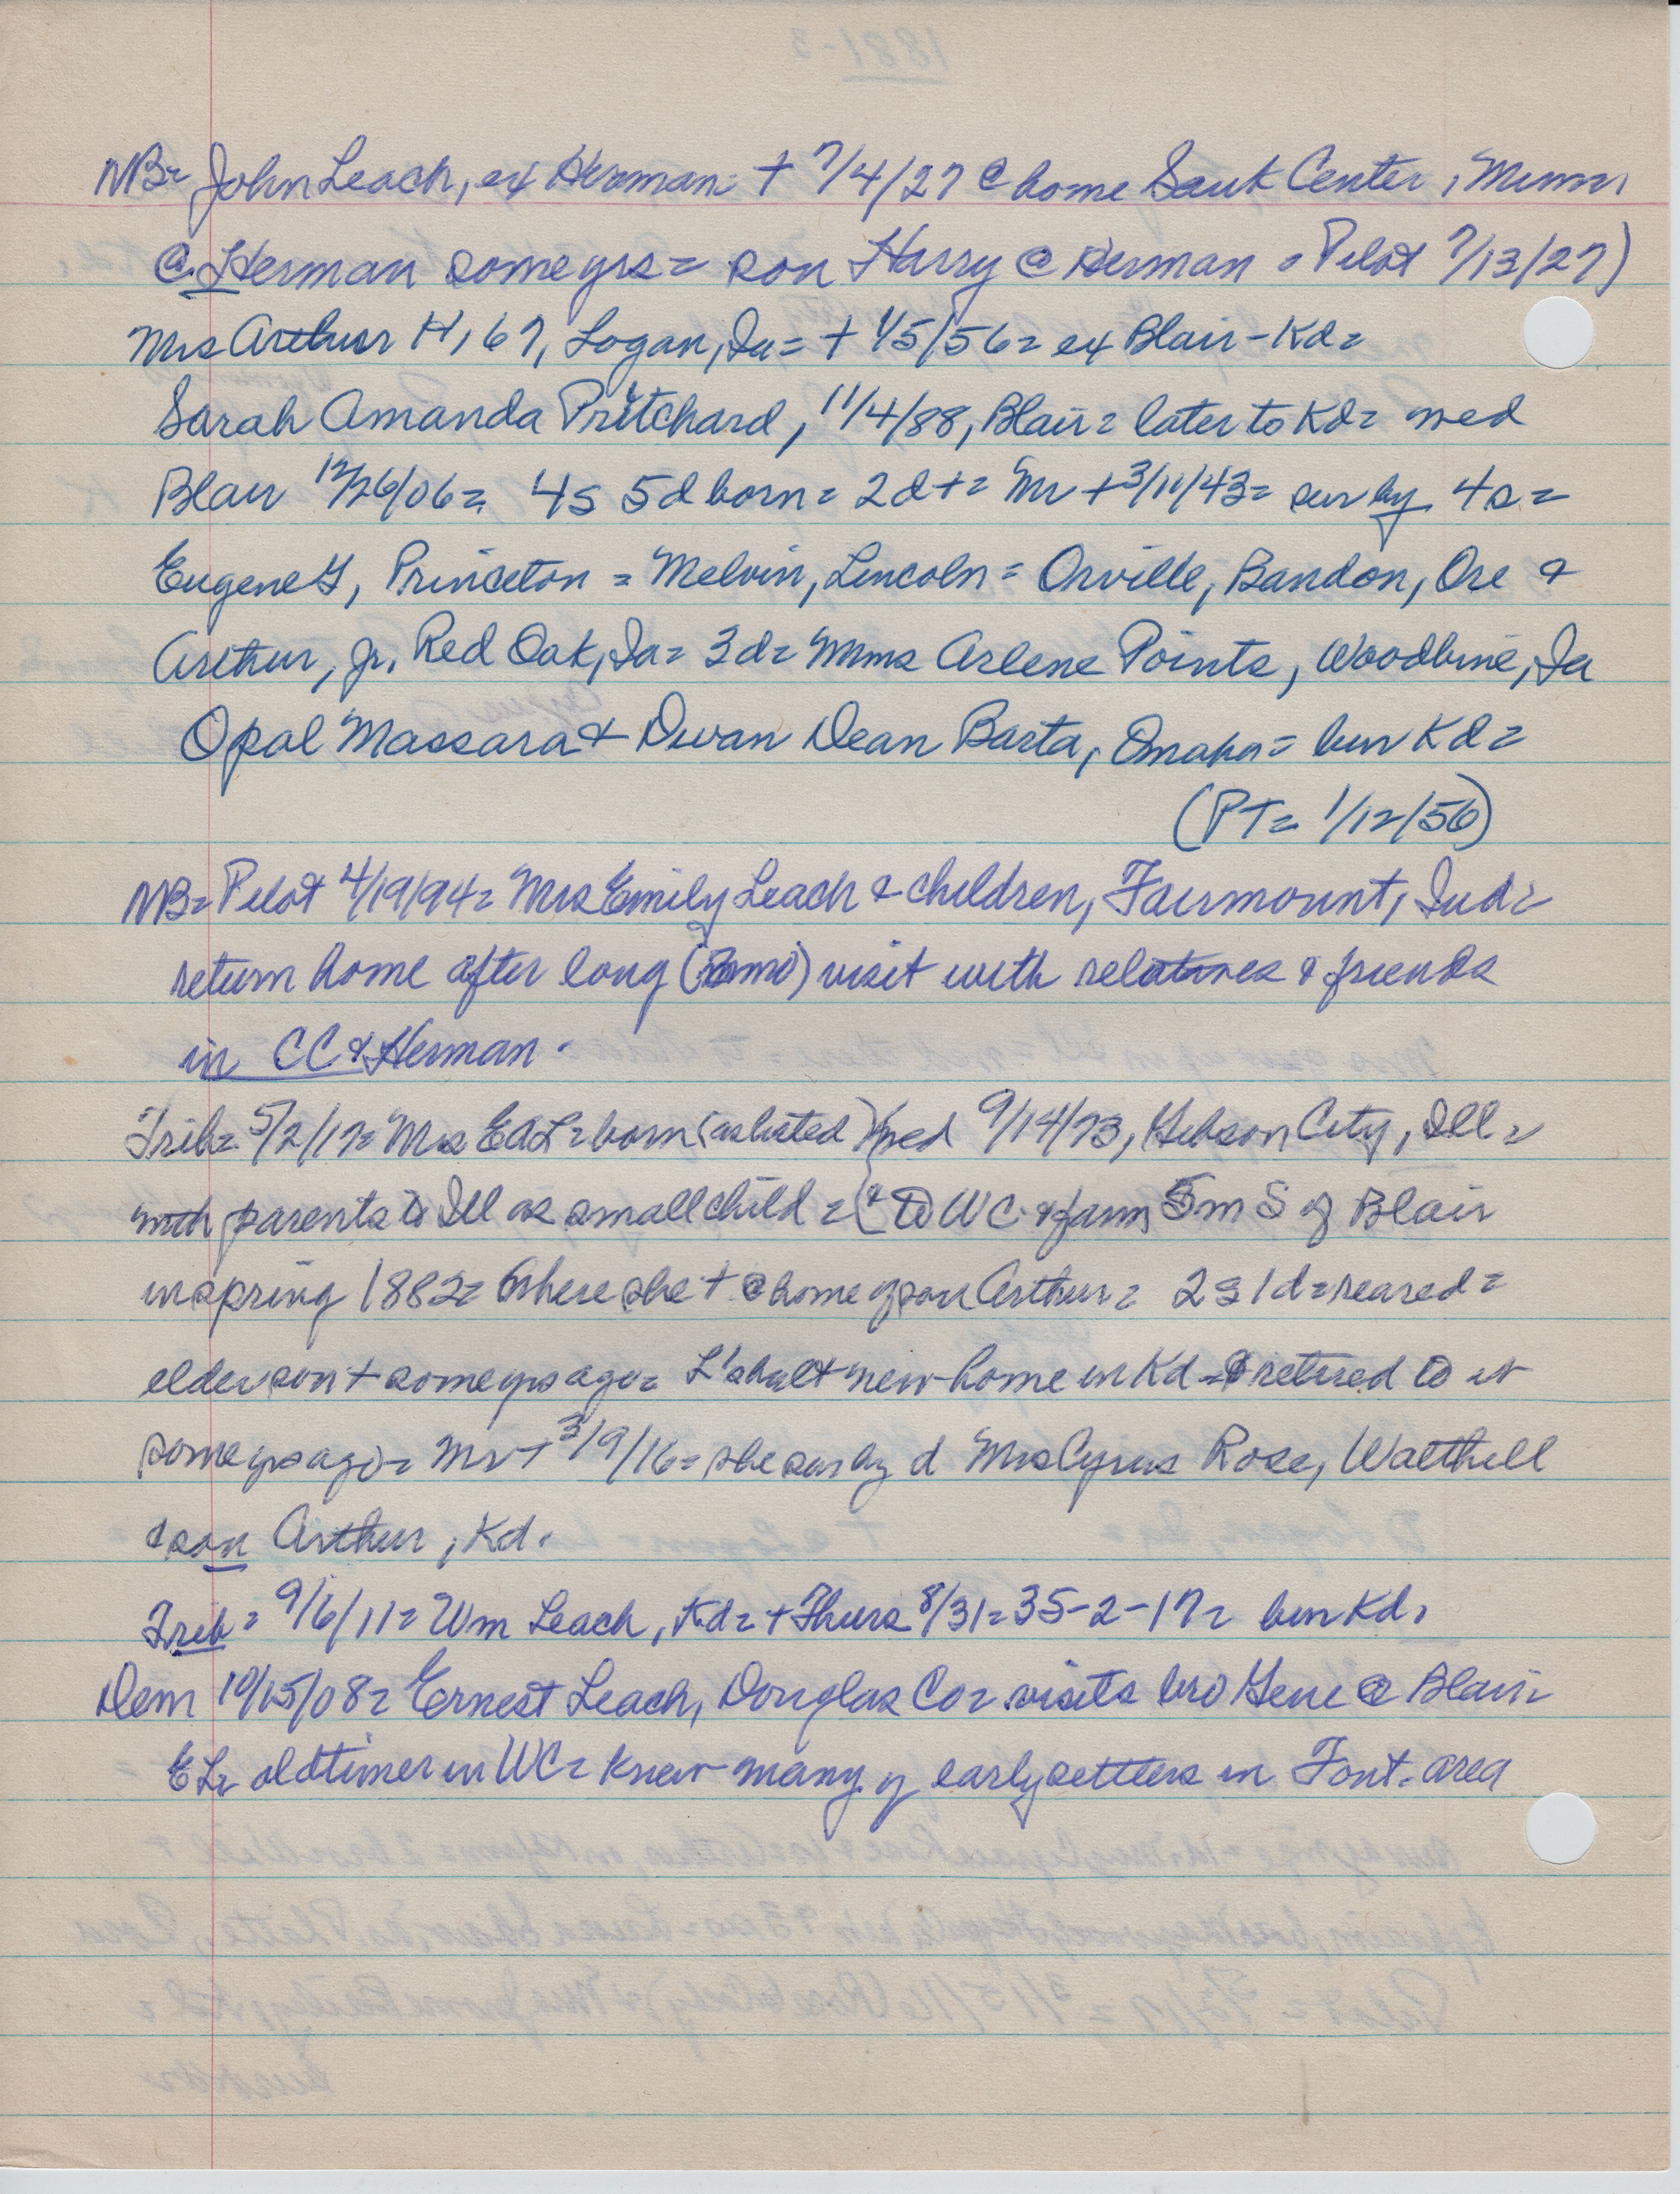 NB= John Leach, ex Herman + 7/4/27 @ home Sauk Center, Minn
@ Herman some yrs = son Harry @ Herman = Pilot 7/13/27)
Mrs Arthur H, 67, Logan, Ia = + 1/5/56 = ex Blair-Kd =
Sarah Amanda Pritchard, 11/4/88, Blair = later to Kd = med
Blair 12/26/06 = 4s 5d born = 2d + = Mr + 3/11/43 = sur by 4s =
Eugene G, Princeton = Melvin, Lincoln = Orville, Bandon, Ore &
Arthur, Jr, Red Oak, Ia = 3d = Mms Arlene Points, Woodbine, Ia
Opal Massara & Dwan Dean Barta, Omaha = bur Kd =
(PT = 1/12/56)
NB = Pilot 4/19/94 = Mrs Emily Leach & children, Fairmount, Ind =
return home after long ( mo) visit with relatives & friends
in CC & Herman.
Trib = 5/2/17 = Mrs EAL = born (as listed) med 9/14/73, Gibson City, Ill =
with parents to Ill as small child = (& to WC & farm 5 m S of Blair
in spring 1882 = where she + @ home of son Arthur = 2s 1d = reared =
elder son + some yrs ago = L's built new home in Kd = & retired to it
some yrs ago = Mr + 3/9/16 = she sur by d Mrs Cyrus Rose, Walthill
& son Arthur, Kd.
Trib = 9/6/11 = Wm Leach, Kd = + Thurs 8/31 = 35-2-17 = bur Kd.
Dem 10/15/08 = Ernest Leach, Douglas Co = visits bro Gene @ Blair =
EL = oldtimer in WC = knew many of early settlers in Font. area